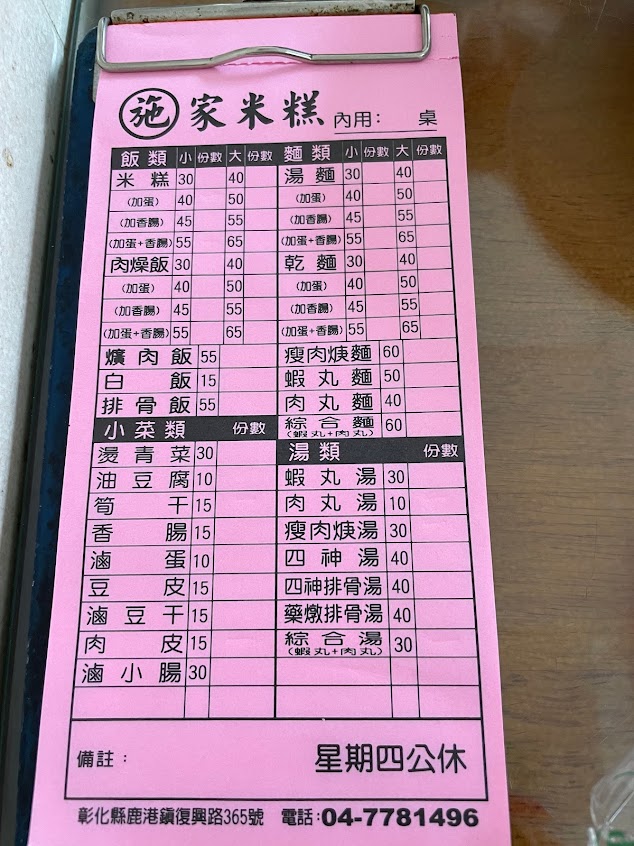 施家米糕 內用： 桌
飯類 小 份數 大 份數 麵類 小 份數 大 份數
米糕 30 40 湯麵 30 40
(加蛋) 40 50 (加蛋) 40 50
(加香腸) 45 55 (加香腸) 45 55
(加蛋+香腸) 55 65 (加蛋+香腸) 55 65
肉燥飯 30 40 乾麵 30 40
(加蛋) 40 50 (加蛋) 40 50
(加香腸) 45 55 (加香腸) 45 55
(加蛋+香腸) 55 65 (加蛋+香腸) 55 65
爌肉飯 55 瘦肉焿麵 60
白飯 15 蝦丸麵 50
排骨飯 55 肉丸麵 40
小菜類 份數 綜合麵 (蝦丸+肉丸) 60
燙青菜 30 湯類 份數
油豆腐 10 蝦丸湯 30
筍干 15 肉丸湯 10
香腸 15 瘦肉焿湯 30
滷蛋 10 四神湯 40
豆皮 15 四神排骨湯 40
滷豆干 15 藥燉排骨湯 40
肉皮 15 綜合湯 (蝦丸+肉丸) 30
滷小腸 30
備註： 星期四公休
彰化縣鹿港鎮復興路365號 電話：04-7781496